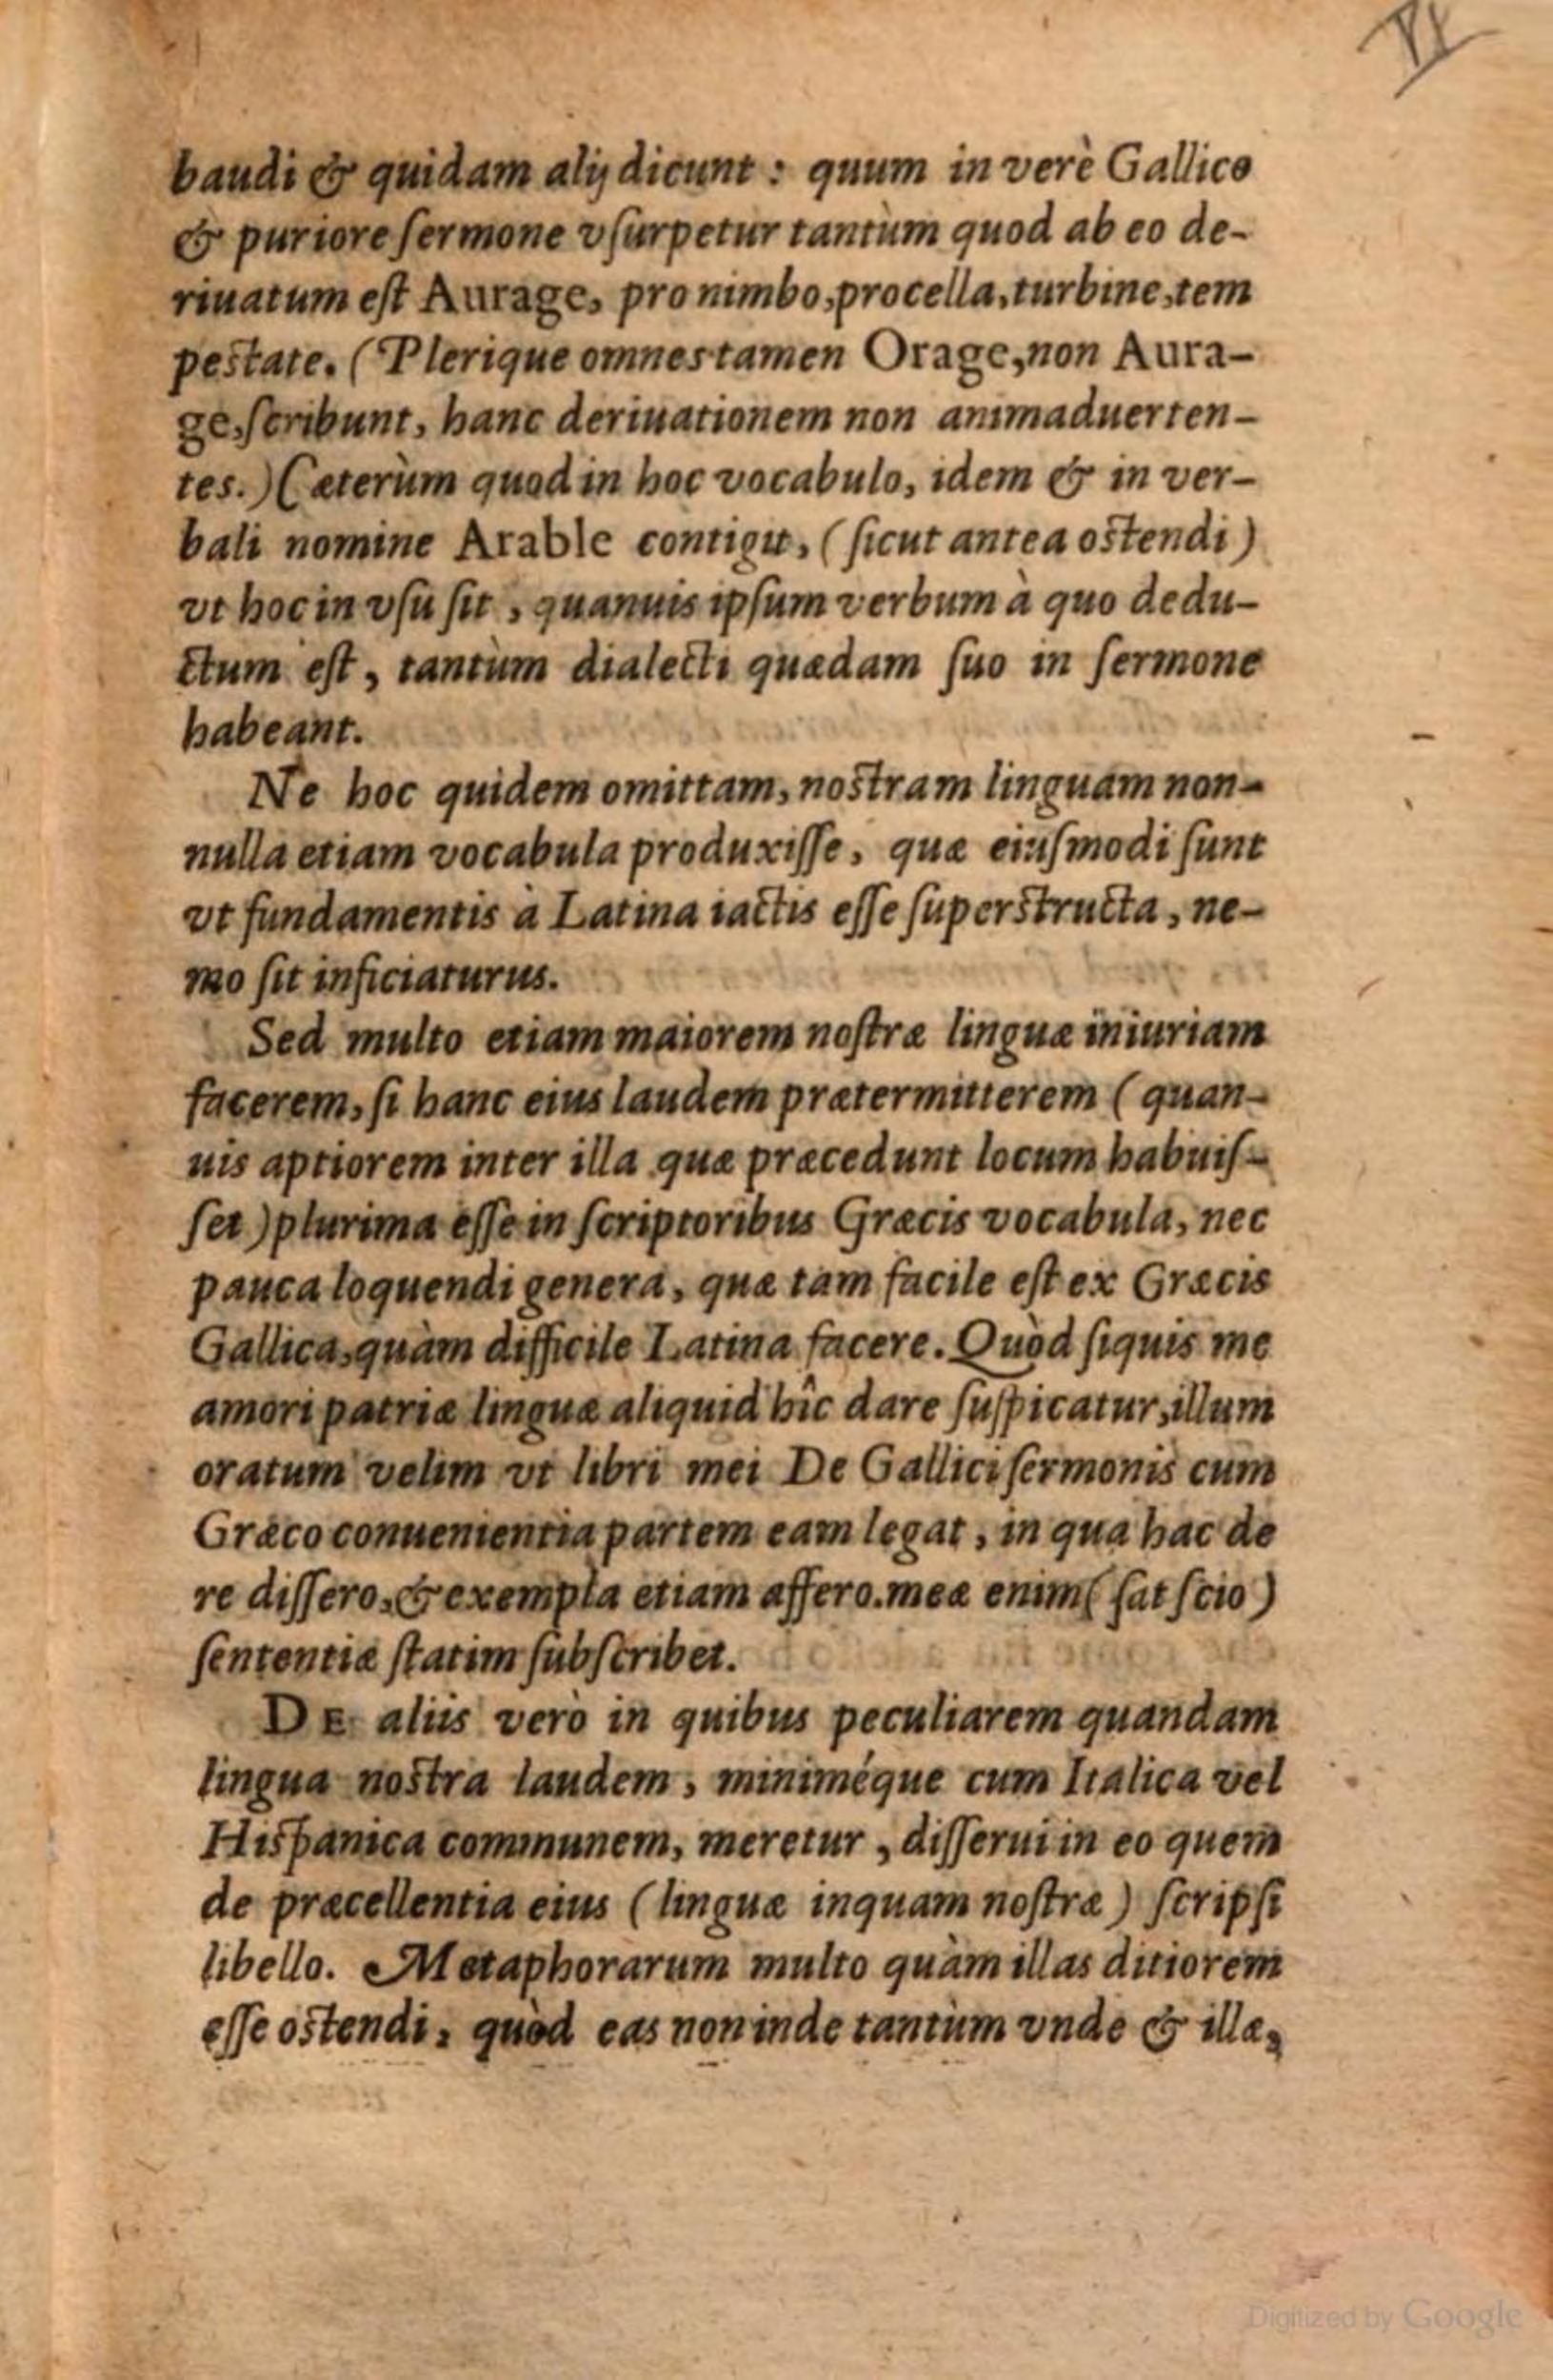 VI
baudi & quidam alij dicunt : quum in verè Gallico
& puriore ſermone vſurpetur tantùm quod ab eo de-
riuatum eſt Aurage, pro nimbo, procella, turbine, tem
peſtate. (Plerique omnes tamen Orage, non Aura-
ge, ſcribunt, hanc deriuationem non animaduerten-
tes.) Cæterùm quod in hoc vocabulo, idem & in ver-
bali nomine Arable contigit, (ſicut antea oſtendi)
vt hoc in vſu ſit , quanuis ipſum verbum à quo dedu-
ctum eſt, tantùm dialecti quædam ſuo in ſermone
habeant.
Ne hoc quidem omittam, noſtram linguam non-
nulla etiam vocabula produxiſſe, quæ eiuſmodi ſunt
vt fundamentis à Latina iactis eſſe ſuperſtructa, ne-
mo ſit inficiaturus.
Sed multo etiam maiorem noſtræ linguæ iniuriam
facerem, ſi hanc eius laudem prætermitterem (quan-
uis aptiorem inter illa quæ præcedunt locum habuiſ-
ſet) plurima eſſe in ſcriptoribus Græcis vocabula, nec
pauca loquendi genera, quæ tam facile eſt ex Græcis
Gallica, quàm difficile Latina facere. Quòd ſiquis me
amori patriæ linguæ aliquid hîc dare ſuſpicatur, illum
oratum velim vt libri mei De Gallici ſermonis cum
Græco conuenientia partem eam legat, in qua hac de
re diſſero, & exempla etiam affero. meæ enim (ſat ſcio)
ſententiæ ſtatim ſubſcribet.
DE aliis verò in quibus peculiarem quandam
lingua noſtra laudem, miniméque cum Italica vel
Hiſpanica communem, meretur, diſſerui in eo quem
de præcellentia eius (linguæ inquam noſtræ) ſcripſi
libello. Metaphorarum multo quàm illas ditiorem
eſſe oſtendi, quòd eas non inde tantùm vnde & illæ,
Digitized by Google